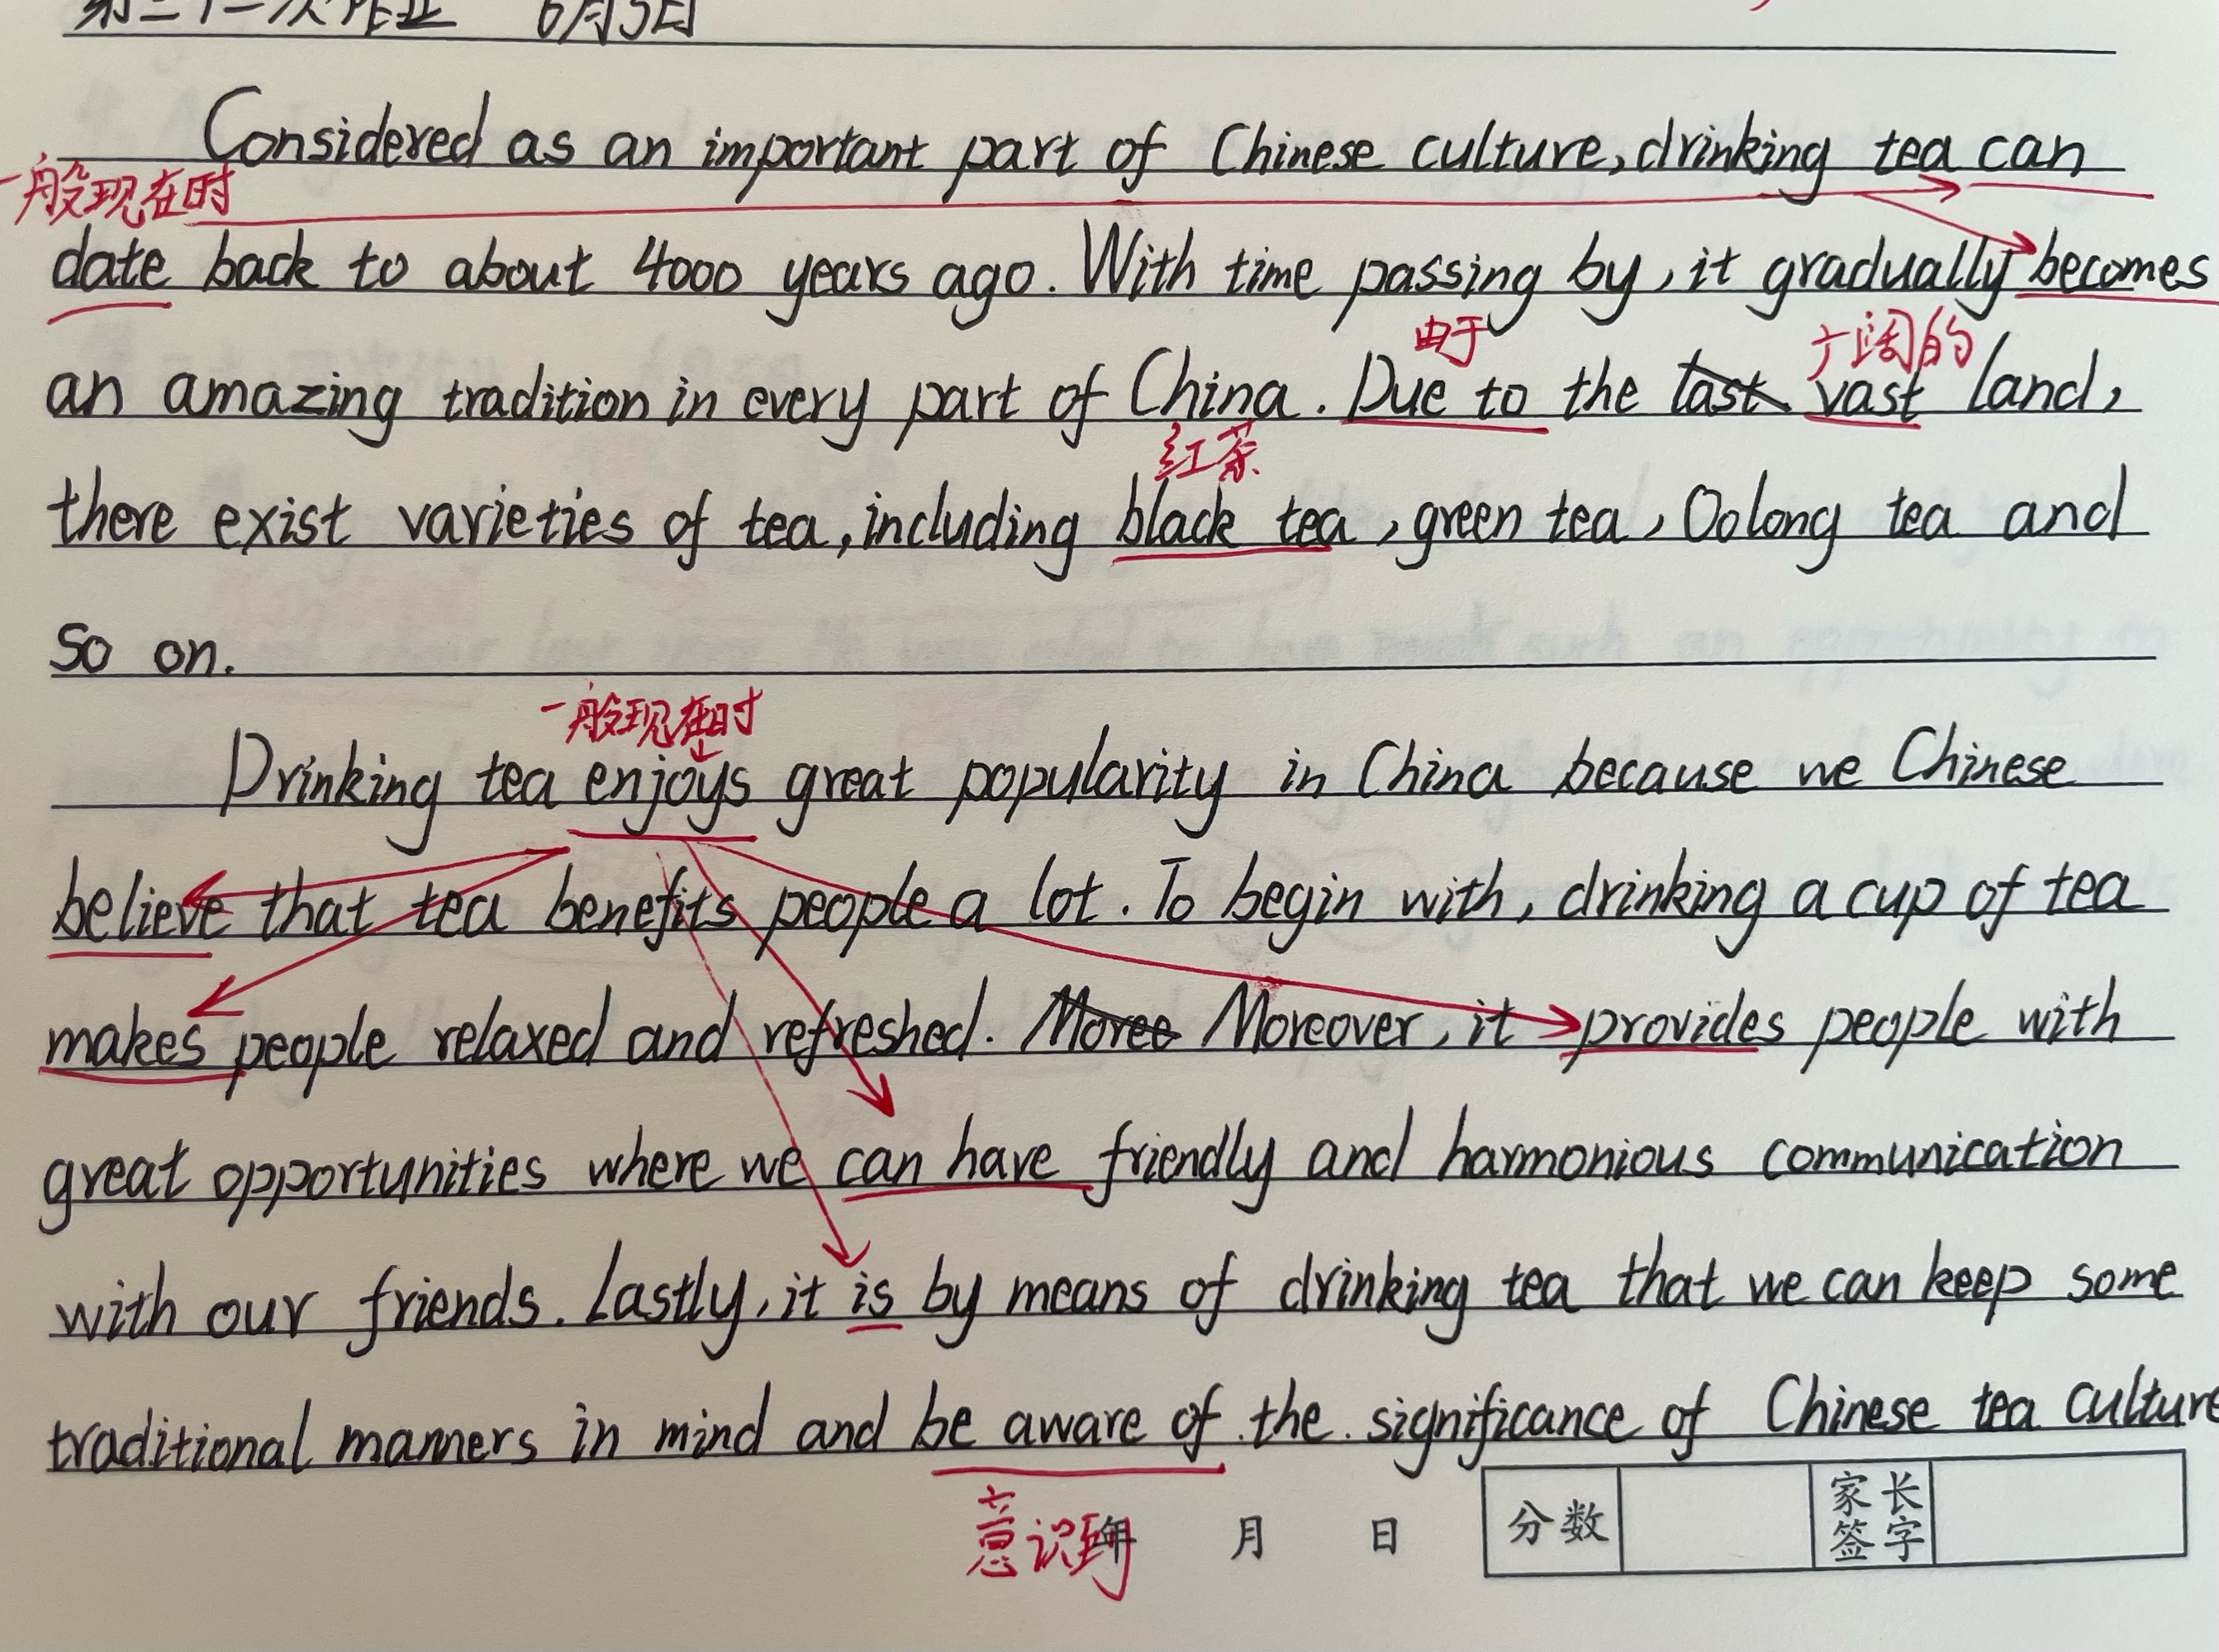 第二十一次作业 6月5日
Considered as an important part of Chinese culture, drinking tea can
一般现在时
date back to about 4000 years ago. With time passing by, it gradually becomes
由于 广阔的
an amazing tradition in every part of China. Due to the last vast land,
红茶
there exist varieties of tea, including black tea, green tea, Oolong tea and
so on.
一般现在时
Drinking tea enjoys great popularity in China because we Chinese
believe that tea benefits people a lot. To begin with, drinking a cup of tea
makes people relaxed and refreshed. Moreo Moreover, it provides people with
great opportunities where we can have friendly and harmonious communication
with our friends. Lastly, it is by means of drinking tea that we can keep some
traditional manners in mind and be aware of the significance of Chinese tea culture
意识到
年 月 日 分数 家长签字